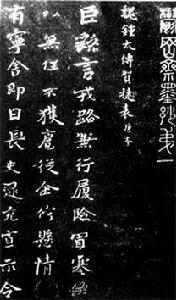 鬱岡齋墨妙弟一
魏鍾太傅賀捷表
臣繇言戎路兼行履險冒寒臣
以無任不獲扈從企佇懸情無
有寧舍即日長史逯充宣示令